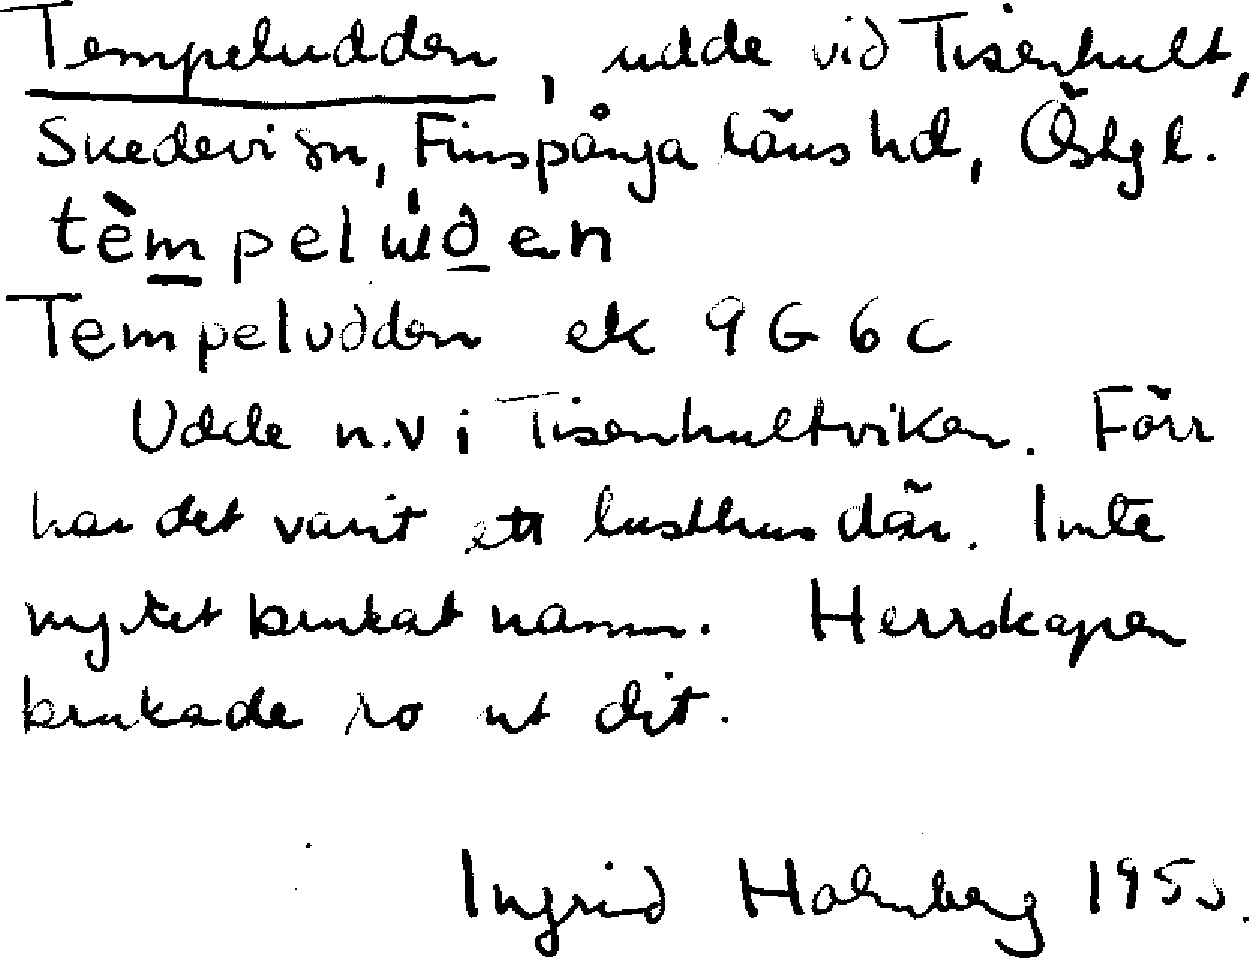 Tempeludden, udde vid Tisenhult,
Skedevi sn, Finspånga läns hd, Östgl.
tèmpelùden
Tempeludden ek 9G6c
Udde n.v i Tisenhultviken. Förr
har det varit ett lusthus där. Inte
mycket brukat namn. Herrskapen
brukade ro ut dit.
Ingrid Holmberg 195